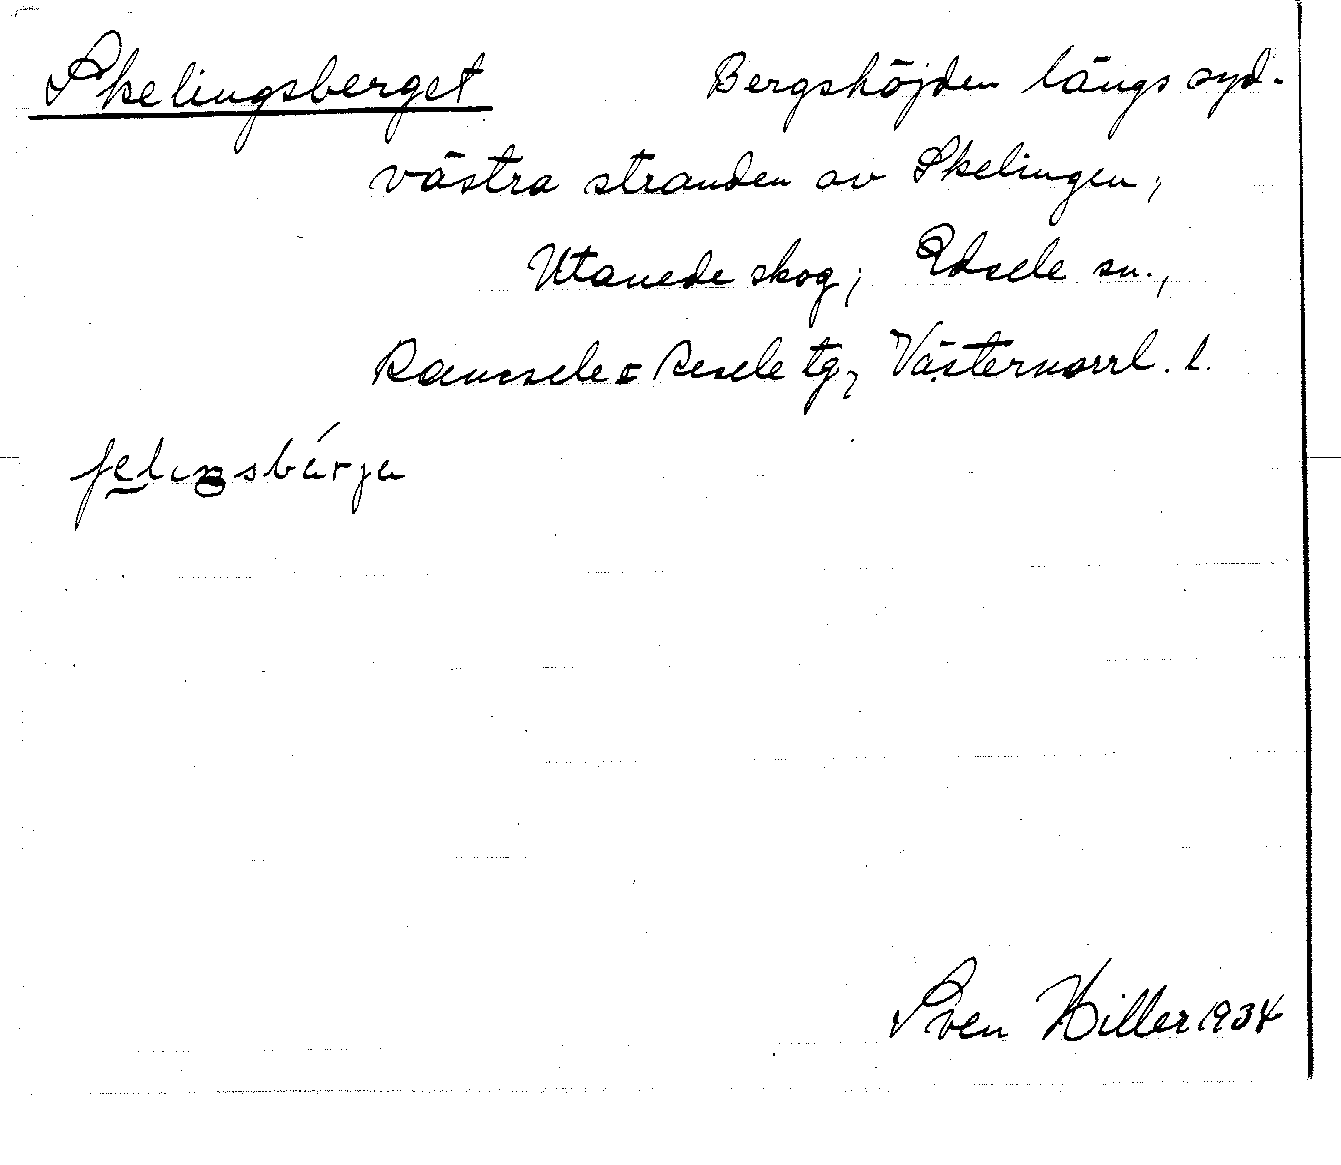 Skelingsberget Bergshöjden längs syd-
västra stranden av Skelingen,
Utanede skog, Edsele sn.,
Ramsele o Resele tg, Västernorrl. l.
Sven Hiller 1934